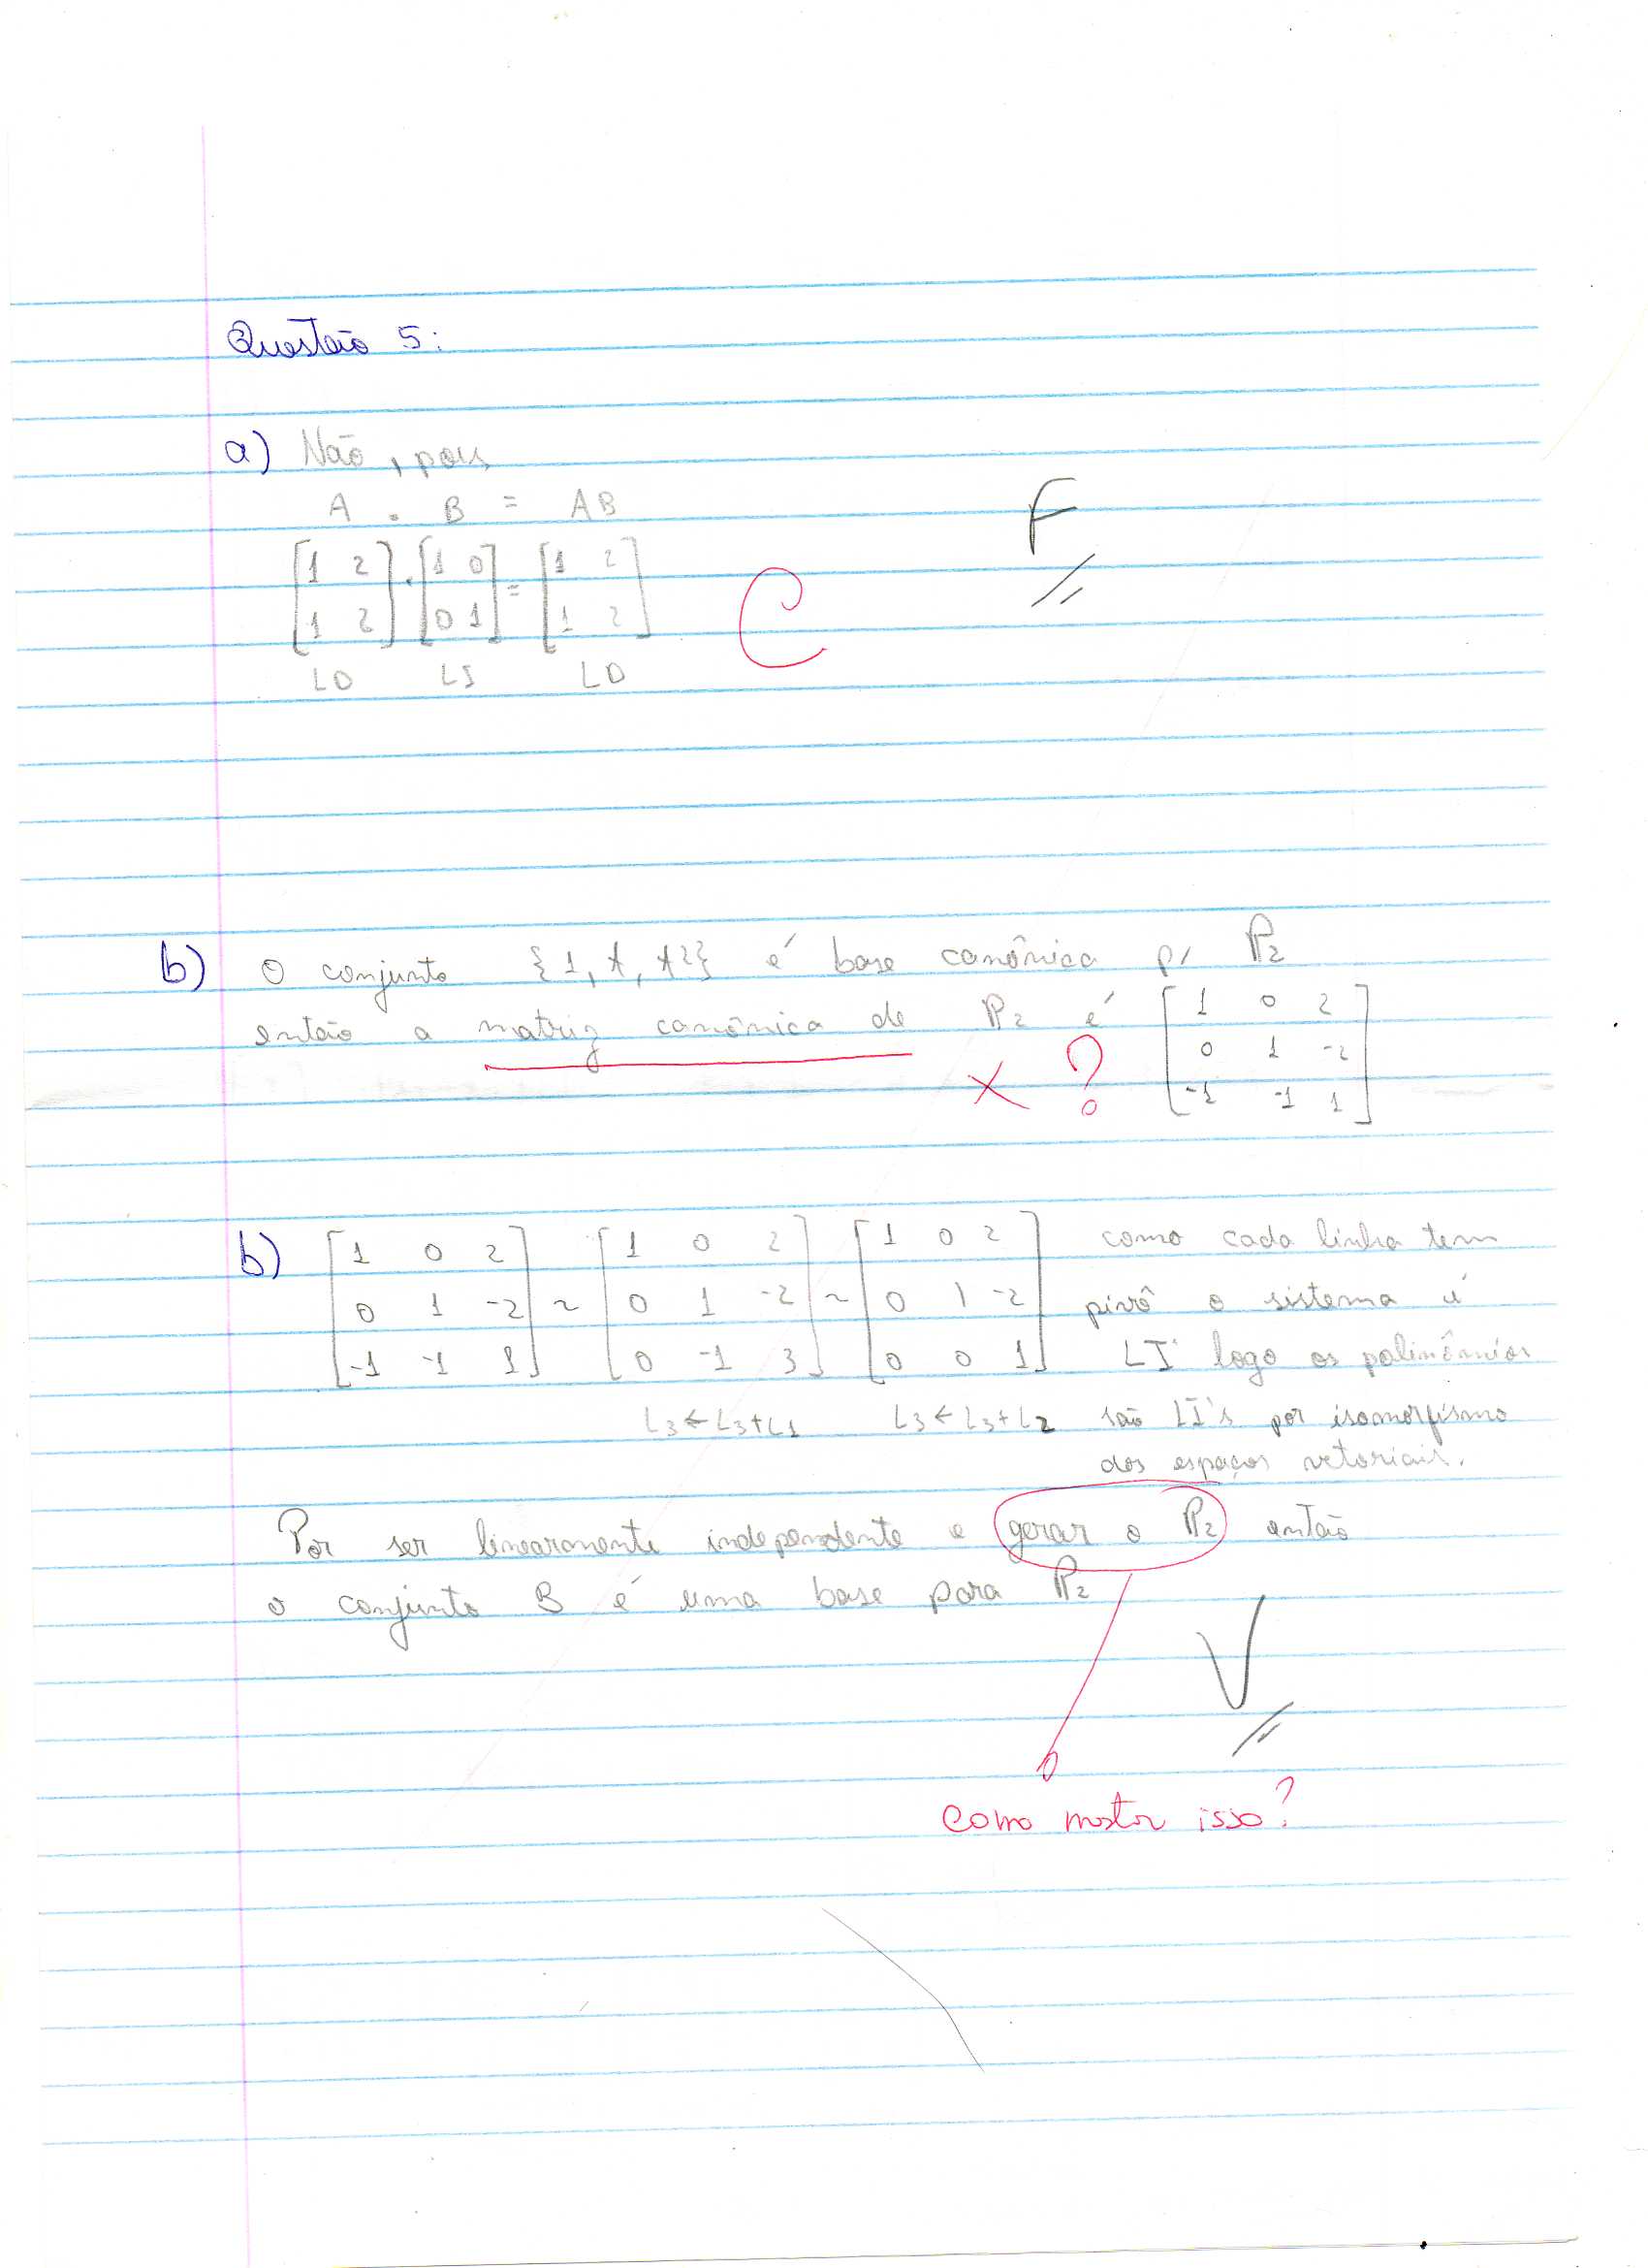 Questão 5:
a) Não, pois
A . B = AB
[1 2; 1 2] . [1 0; 0 1] = [1 2; 1 2]
LD LI LD
C
F
b) O conjunto {1, t, t²} é base canônica p/ P₂
então a matriz canônica de P₂ é [1 0 2; 0 1 -2; -1 -1 1]
X ?
b) [1 0 2; 0 1 -2; -1 -1 1] ~ [1 0 2; 0 1 -2; 0 -1 3] ~ [1 0 2; 0 1 -2; 0 0 1] como cada linha tem
pivô o sistema é
LI logo os polinômios
L₃ ← L₃ + L₁ L₃ ← L₃ + L₂ são LI's por isomorfismo
dos espaços vetoriais.
Por ser linearmente independente e gerar o P₂ então
o conjunto B é uma base para P₂
V
como mostor isso?